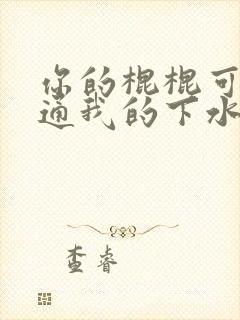 你的棍棍可
通我的下水
查睿